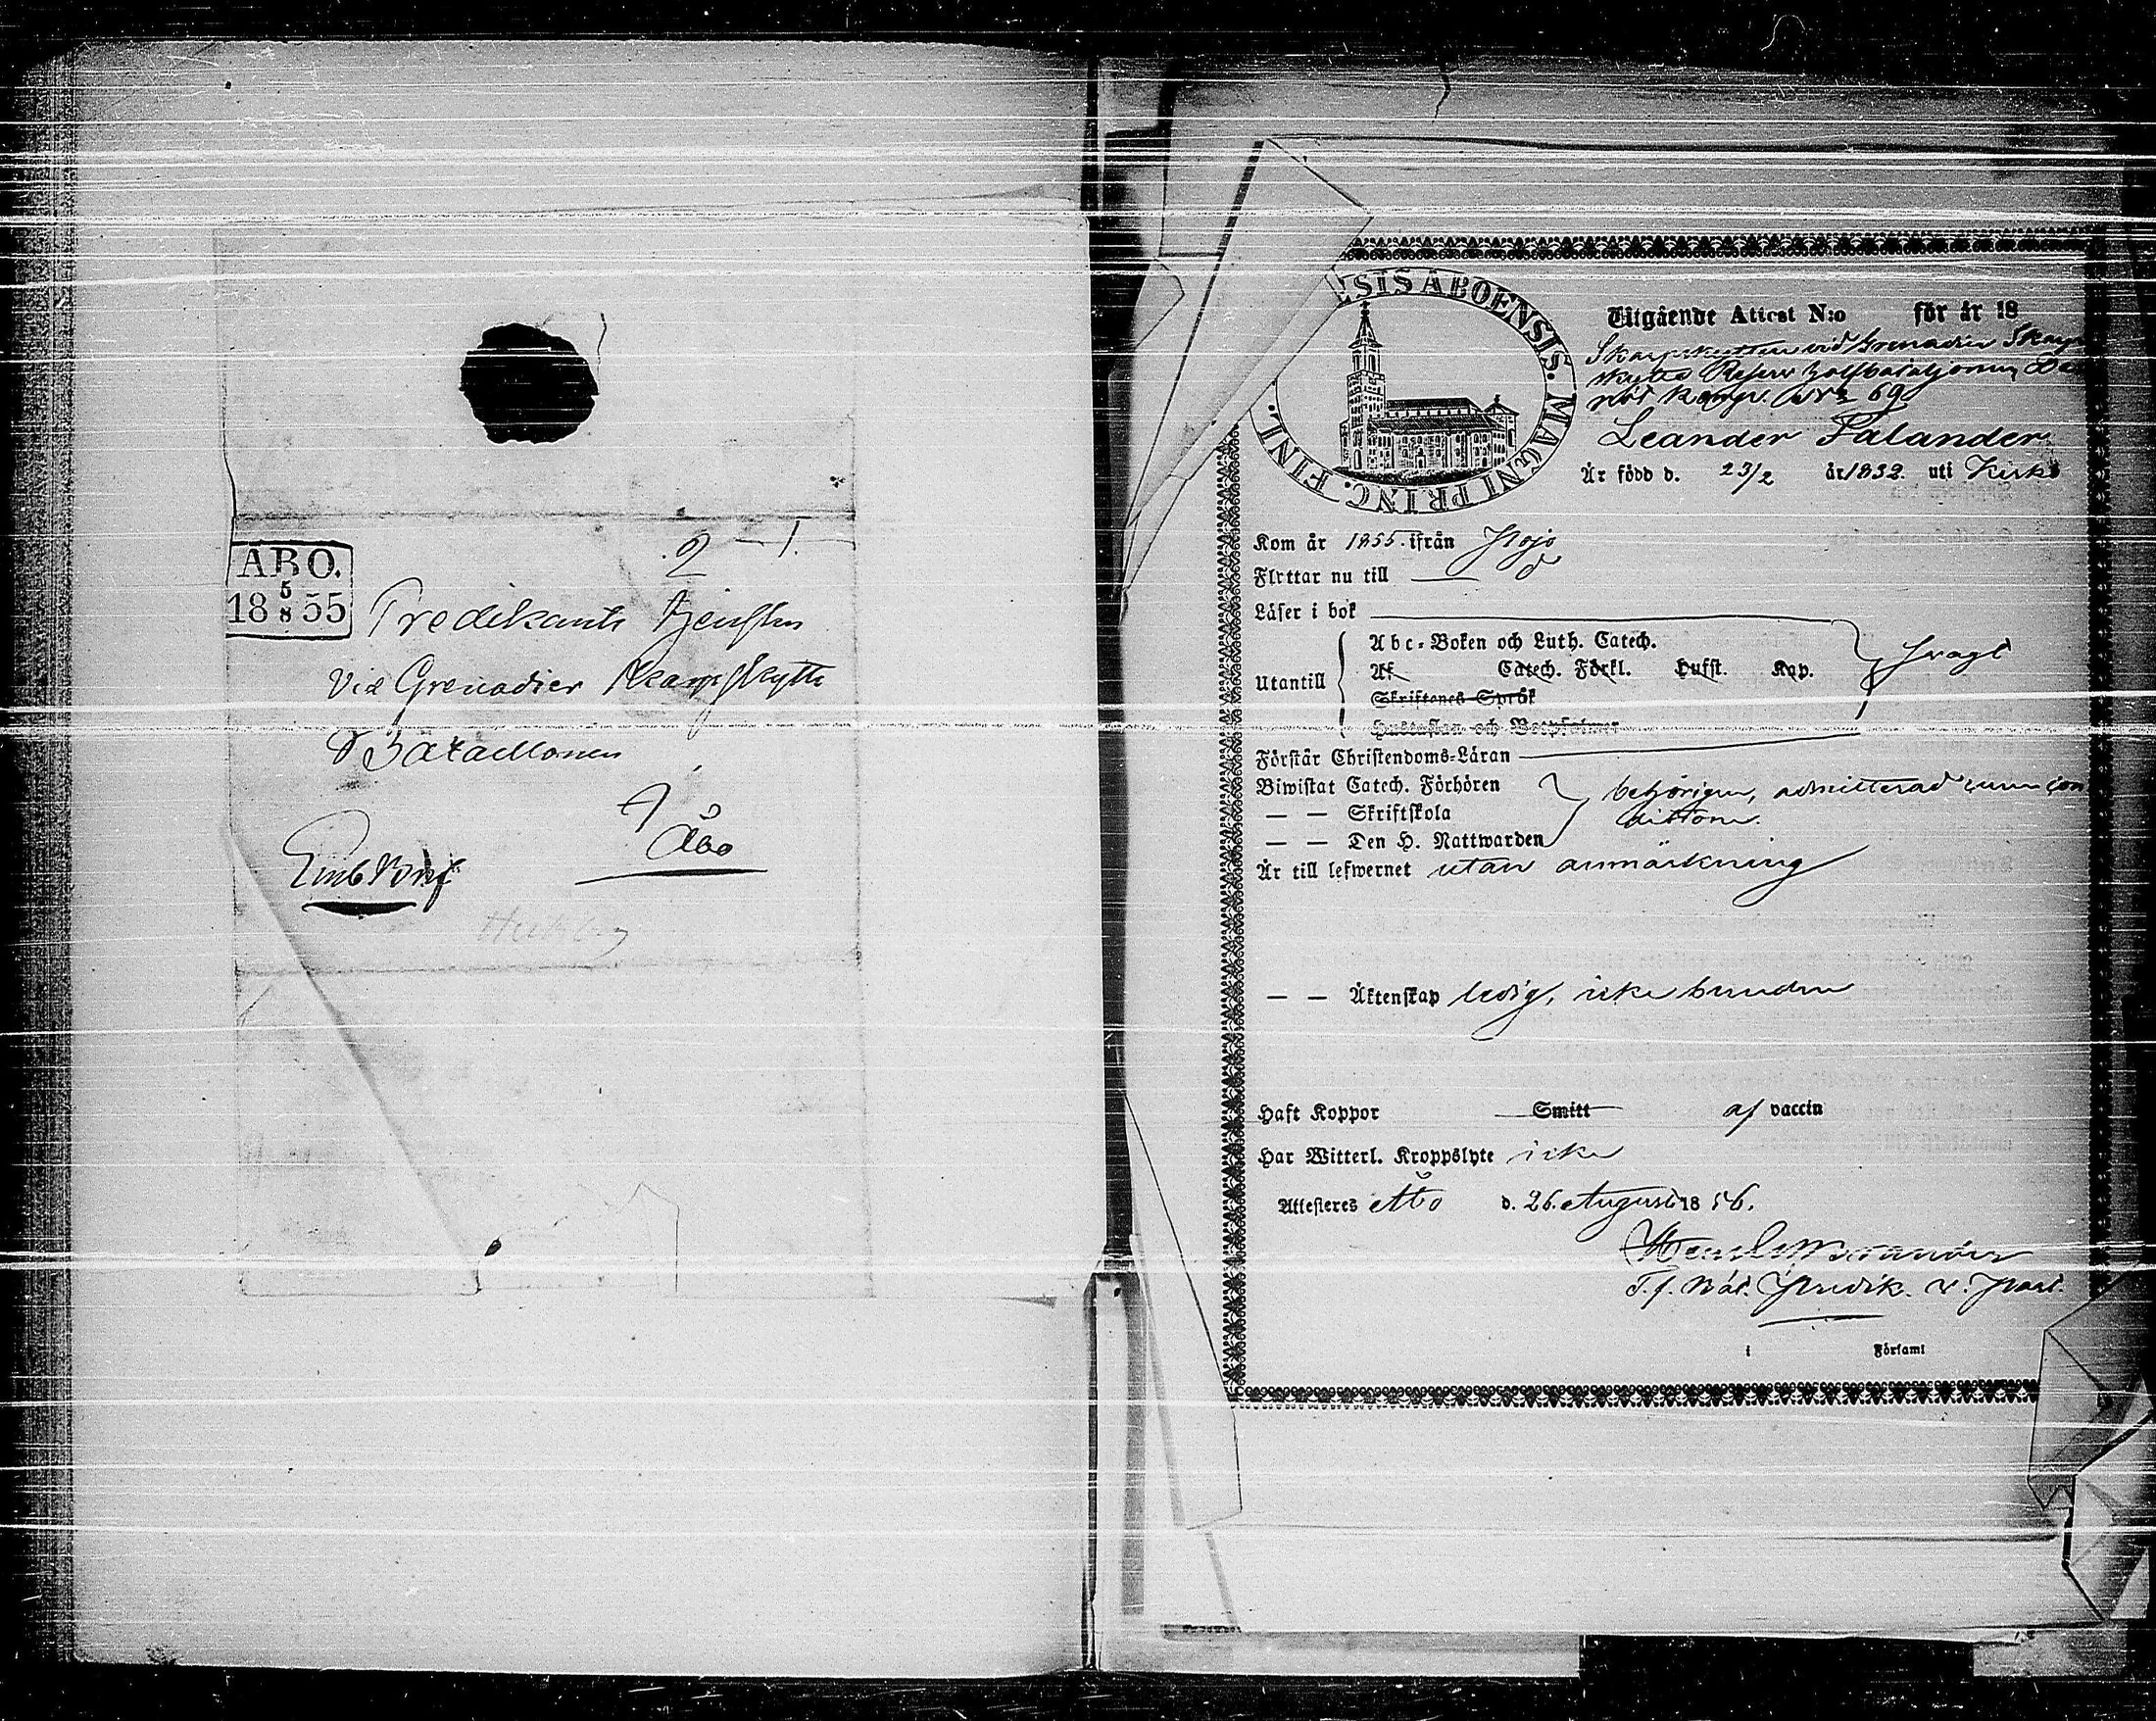 ABO.
5
18 8 55
2 – 1.
Predikants tjensten
vid Grenadier Skarpskytte
Bataillonen
Åbo
ENSIS ABOENSIS. MAGNI PRINC. FINL.
Utgående Attest N:o för år 18
Skarpskytten vid Grenadier Skarp
skytte Reserv halfbataljonen
komp. N:o 69
Leander Palander
Är född d. 23/2 år 1832. uti Kisko
Kom år 1855. ifrån Pojo
Flyttar nu till
Läser i bok
Utantill
Abc-Boken och Luth. Catech.
Af Catech. Förkl. Hufst. Kap.
Skriftenes Språk
Hustaflan och Botpsalmer
svagt
Förstår Christendoms-Läran
Biwistat Catech. Förhören
— — Skriftskola
— — Den H. Nattwarden
behörigen, admitterad
Är till lefwernet utan anmärkning
— — Äktenskap ledig, icke bunden
Haft Koppor Smitt af vaccin
Har Witterl. Kroppslyte icke
Attesteras Åbo d. 26. Augusti 18 56.
T. f. Bat. Predik. v. Past.
i Församl